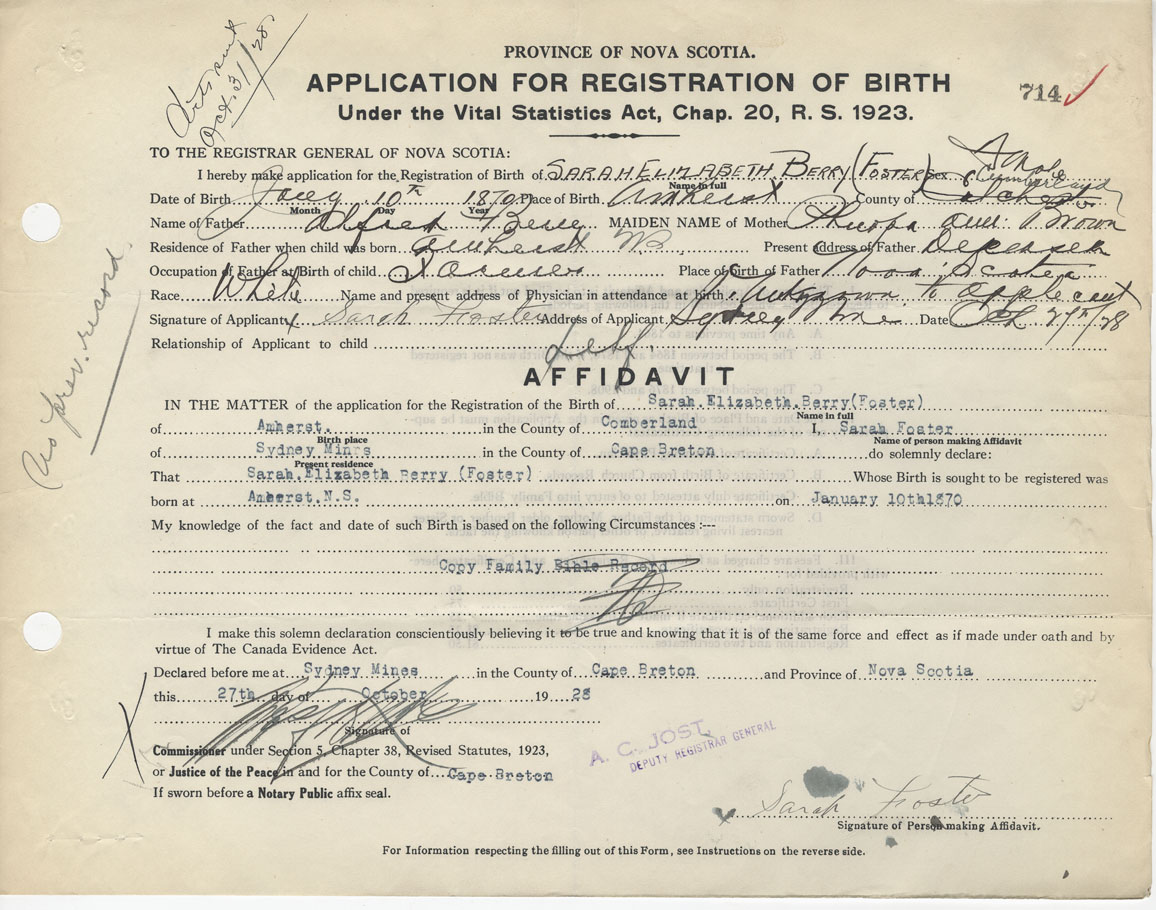 Oct. 31/28
PROVINCE OF NOVA SCOTIA.
APPLICATION FOR REGISTRATION OF BIRTH
714
Under the Vital Statistics Act, Chap. 20, R. S. 1923.
TO THE REGISTRAR GENERAL OF NOVA SCOTIA:
I hereby make application for the Registration of Birth of SARAH ELIZABETH BERRY (FOSTER) Sex
Name in full
Cumberland
Date of Birth 10th 1870 Place of Birth Amherst County of
Month Day Year
Name of Father Alfred MAIDEN NAME of Mother Ann Brown
Residence of Father when child was born Amherst Present address of Father Deceased
Occupation of Father at Birth of child Farmer Place of Birth of Father Nova Scotia
Race White Name and present address of Physician in attendance at birth. Unknown to applicant
Signature of Applicant Sarah Foster Address of Applicant Sydney Date Oct 27th/28
Relationship of Applicant to child Self.
AFFIDAVIT
IN THE MATTER of the application for the Registration of the Birth of Sarah.Elizabeth.Berry(Foster)
Name in full
of Amherst. in the County of Comberland I, Sarah Foster
Birth place Name of person making Affidavit
of Sydney Mines in the County of Cape Breton do solemnly declare:
Present residence
That Sarah.Elizabeth Berry (Foster) Whose Birth is sought to be registered was
born at Amherst.N.S. on January 10th1870
My knowledge of the fact and date of such Birth is based on the following Circumstances :---
Copy Family Bible Record
I make this solemn declaration conscientiously believing it to be true and knowing that it is of the same force and effect as if made under oath and by
virtue of The Canada Evidence Act.
Declared before me at Sydney Mines in the County of Cape Breton and Province of Nova Scotia
this 27th day of October 19 28
Signature of
Commissioner under Section 5, Chapter 38, Revised Statutes, 1923,
or Justice of the Peace in and for the County of Cape Breton
If sworn before a Notary Public affix seal.
A. C. JOST,
DEPUTY REGISTRAR GENERAL
Sarah Foster
Signature of Person making Affidavit.
For Information respecting the filling out of this Form, see Instructions on the reverse side.
No prev. record.